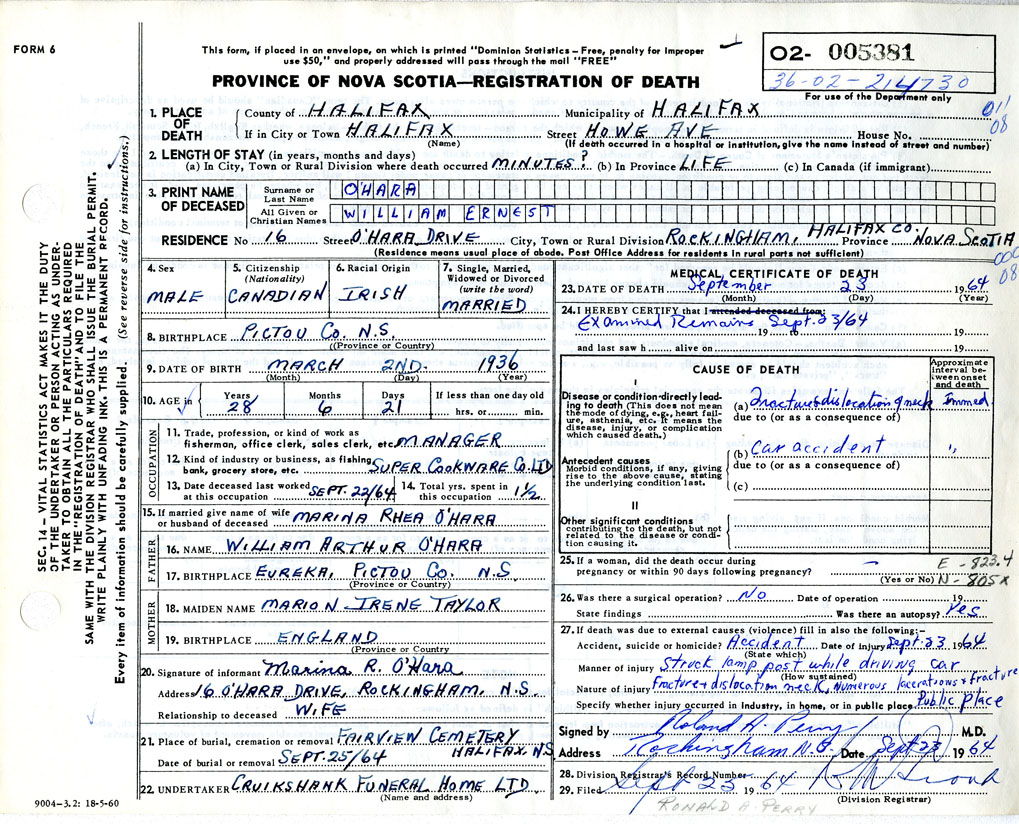 FORM 6
This form, if placed in an envelope, on which is printed "Dominion Statistics – Free, penalty for improper
use $50," and properly addressed will pass through the mail "FREE"
02- 005381
36-02-214730
For use of the Department only
PROVINCE OF NOVA SCOTIA—REGISTRATION OF DEATH
011
08
1. PLACE OF DEATH
County of HALIFAX Municipality of HALIFAX
If in City or Town HALIFAX Street HOWE AVE House No.
(Name) (If death occurred in a hospital or institution, give the name instead of street and number)
2. LENGTH OF STAY (in years, months and days)
(a) In City, Town or Rural Division where death occurred MINUTES? (b) In Province LIFE (c) In Canada (if immigrant)
3. PRINT NAME OF DECEASED
Surname or Last Name O'HARA
All Given or Christian Names WILLIAM ERNEST
RESIDENCE No 16 Street O'HARA DRIVE City, Town or Rural Division ROCKINGHAM, HALIFAX CO. Province NOVA SCOTIA
(Residence means usual place of abode. Post Office Address for residents in rural parts not sufficient)
000
08
4. Sex MALE
5. Citizenship (Nationality) CANADIAN
6. Racial Origin IRISH
7. Single, Married, Widowed or Divorced (write the word) MARRIED
8. BIRTHPLACE PICTOU CO. N.S.
(Province or Country)
9. DATE OF BIRTH MARCH 2ND. 1936
(Month) (Day) (Year)
10. AGE in Years 28 Months 6 Days 21 If less than one day old hrs. or min.
OCCUPATION
11. Trade, profession, or kind of work as fisherman, office clerk, sales clerk, etc. MANAGER
12. Kind of industry or business, as fishing bank, grocery store, etc. SUPER COOKWARE CO. LTD
13. Date deceased last worked at this occupation SEPT. 22/64 14. Total yrs. spent in this occupation 1½
15. If married give name of wife or husband of deceased MARINA RHEA O'HARA
FATHER
16. NAME WILLIAM ARTHUR O'HARA
17. BIRTHPLACE EUREKA, PICTOU CO. N.S
(Province or Country)
MOTHER
18. MAIDEN NAME MARION IRENE TAYLOR
19. BIRTHPLACE ENGLAND
(Province or Country)
20. Signature of informant Marina R. O'Hara
Address 16 O'HARA DRIVE, ROCKINGHAM, N.S
Relationship to deceased WIFE
21. Place of burial, cremation or removal FAIRVIEW CEMETERY
HALIFAX, N.S.
Date of burial or removal SEPT. 25/64
22. UNDERTAKER CRUIKSHANK FUNERAL HOME LTD.
(Name and address)
MEDICAL CERTIFICATE OF DEATH
23. DATE OF DEATH September 23 1964
(Month) (Day) (Year)
24. I HEREBY CERTIFY that I attended deceased from:
Examined Remains Sept. 23/64
19 19
and last saw h alive on 19
CAUSE OF DEATH
Approximate interval between onset and death
I
Disease or condition directly leading to death (This does not mean the mode of dying, e.g., heart failure, asthenia, etc. It means the disease, injury, or complication which caused death.)
(a) Fracture & dislocation of neck Immed
due to (or as a consequence of)
Antecedent causes
Morbid conditions, if any, giving rise to the above cause, stating the underlying condition last.
(b) Car accident "
due to (or as a consequence of)
(c)
II
Other significant conditions contributing to the death, but not related to the disease or condition causing it.
25. If a woman, did the death occur during pregnancy or within 90 days following pregnancy? —
(Yes or No)
E - 823.4
N - 805x
26. Was there a surgical operation? No Date of operation 19
State findings Was there an autopsy? Yes
27. If death was due to external causes (violence) fill in also the following:-
Accident, suicide or homicide? Accident Date of injury Sept. 23 1964
(State which)
Manner of injury Struck lamp post while driving car
(How sustained)
Nature of injury Fracture & dislocation neck, numerous lacerations & fracture
Specify whether injury occurred in industry, in home, or in public place Public Place
Signed by Roland A. Perry M.D.
Address Rockingham N.S. Date Sept 23 1964
28. Division Registrar's Record Number
29. Filed Sept 23 1964
(Division Registrar)
RONALD A. PERRY
9004-3.2: 18-5-60
SEC. 14 – VITAL STATISTICS ACT MAKES IT THE DUTY
OF THE UNDERTAKER OR PERSON ACTING AS UNDER-
TAKER TO OBTAIN ALL THE PARTICULARS REQUIRED
IN THE "REGISTRATION OF DEATH" AND TO FILE THE
SAME WITH THE DIVISION REGISTRAR WHO SHALL ISSUE THE BURIAL PERMIT.
WRITE PLAINLY WITH UNFADING INK. THIS IS A PERMANENT RECORD.
Every item of information should be carefully supplied. (See reverse side for instructions.)